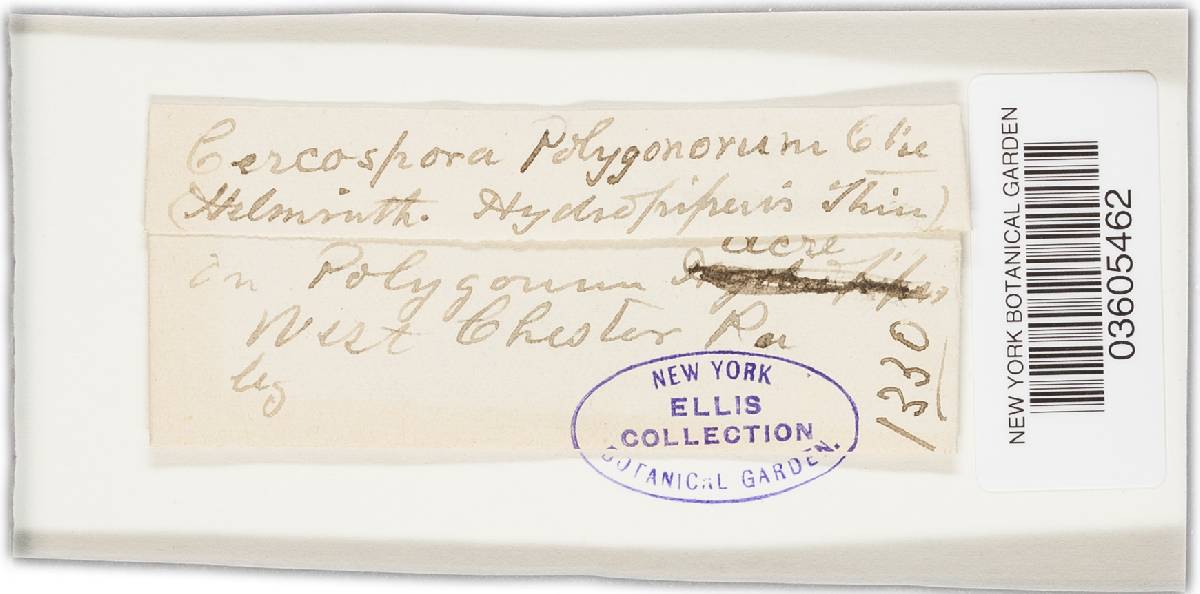 Cercospora Polygonorum Cke
(Helminth. Hydropiperis Thüm)
on Polygonum acre
West Chester Pa
leg
1330
NEW YORK
ELLIS
COLLECTION
BOTANICAL GARDEN.
NEW YORK BOTANICAL GARDEN
03605462